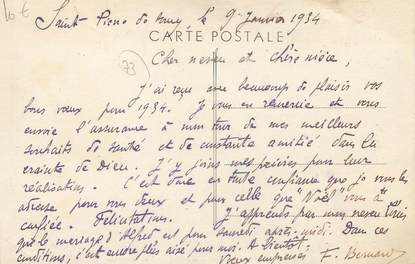 10 €
Saint Pierre de le 9 Janvier 1934
CARTE POSTALE
73
Cher neveu et chère nièce,
J'ai reçu avec beaucoup de plaisir vos
bons vœux pour 1934. Je vous en remercie et vous
envoie l'assurance à mon tour de mes meilleurs
souhaits de santé et de constante amitié dans la
crainte de Dieu. J'y joins mes prières pour leur
réalisation. C'est donc en toute confiance que je vous les
adresse pour vous deux et pour celle que Noël vous a
confiée. Félicitations. J'apprends par mon neveu Louis
que le mariage d'Alfred est pour samedi après-midi. Dans ces
conditions, c'est encore plus aisé pour moi. A bientôt.
Vœux empressés F. Bernard